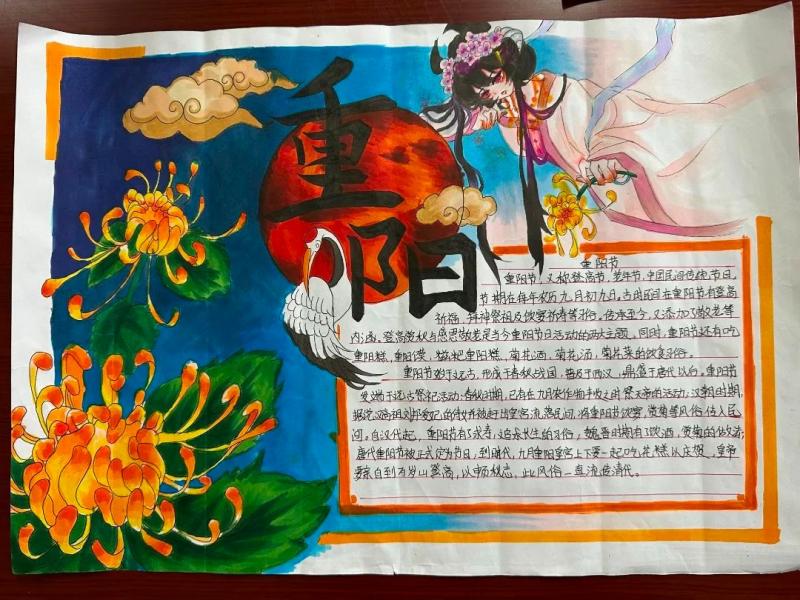 重阳
重阳节
重阳节，又称登高节、老年节，中国民间传统节日，
节期在每年农历九月初九，古时民间在重阳节有登高
祈福、拜神祭祖及饮宴祈寿等习俗。传承至今，又添加了敬老等
内涵，登高赏秋与感恩敬老是当今重阳节日活动的两大主题，同时，重阳节还有吃
重阳糕、重阳、糍粑重阳糕、菊花酒、菊花酒、菊花茶的饮食习俗。
重阳节始于远古，形成于春秋战国，普及于西汉，鼎盛于唐代以后。重阳节
发端于远古祭祀活动，春秋时期，已有在九月农作物丰收之时祭天帝的活动，汉朝时期，
据说汉高祖刘邦爱妃的侍女被赶出皇宫流落民间，将重阳节饮宴、赏菊等风俗传入民
间。自汉代起，重阳节有了求寿、追求长生的习俗，魏晋时期有了饮酒、赏菊的做法；
唐代重阳节被正式定为节日，到明代，九月重阳皇宫上下要一起吃花糕以庆贺，皇帝
要亲自到万岁山登高，以畅秋志，此风俗一直流传清代。